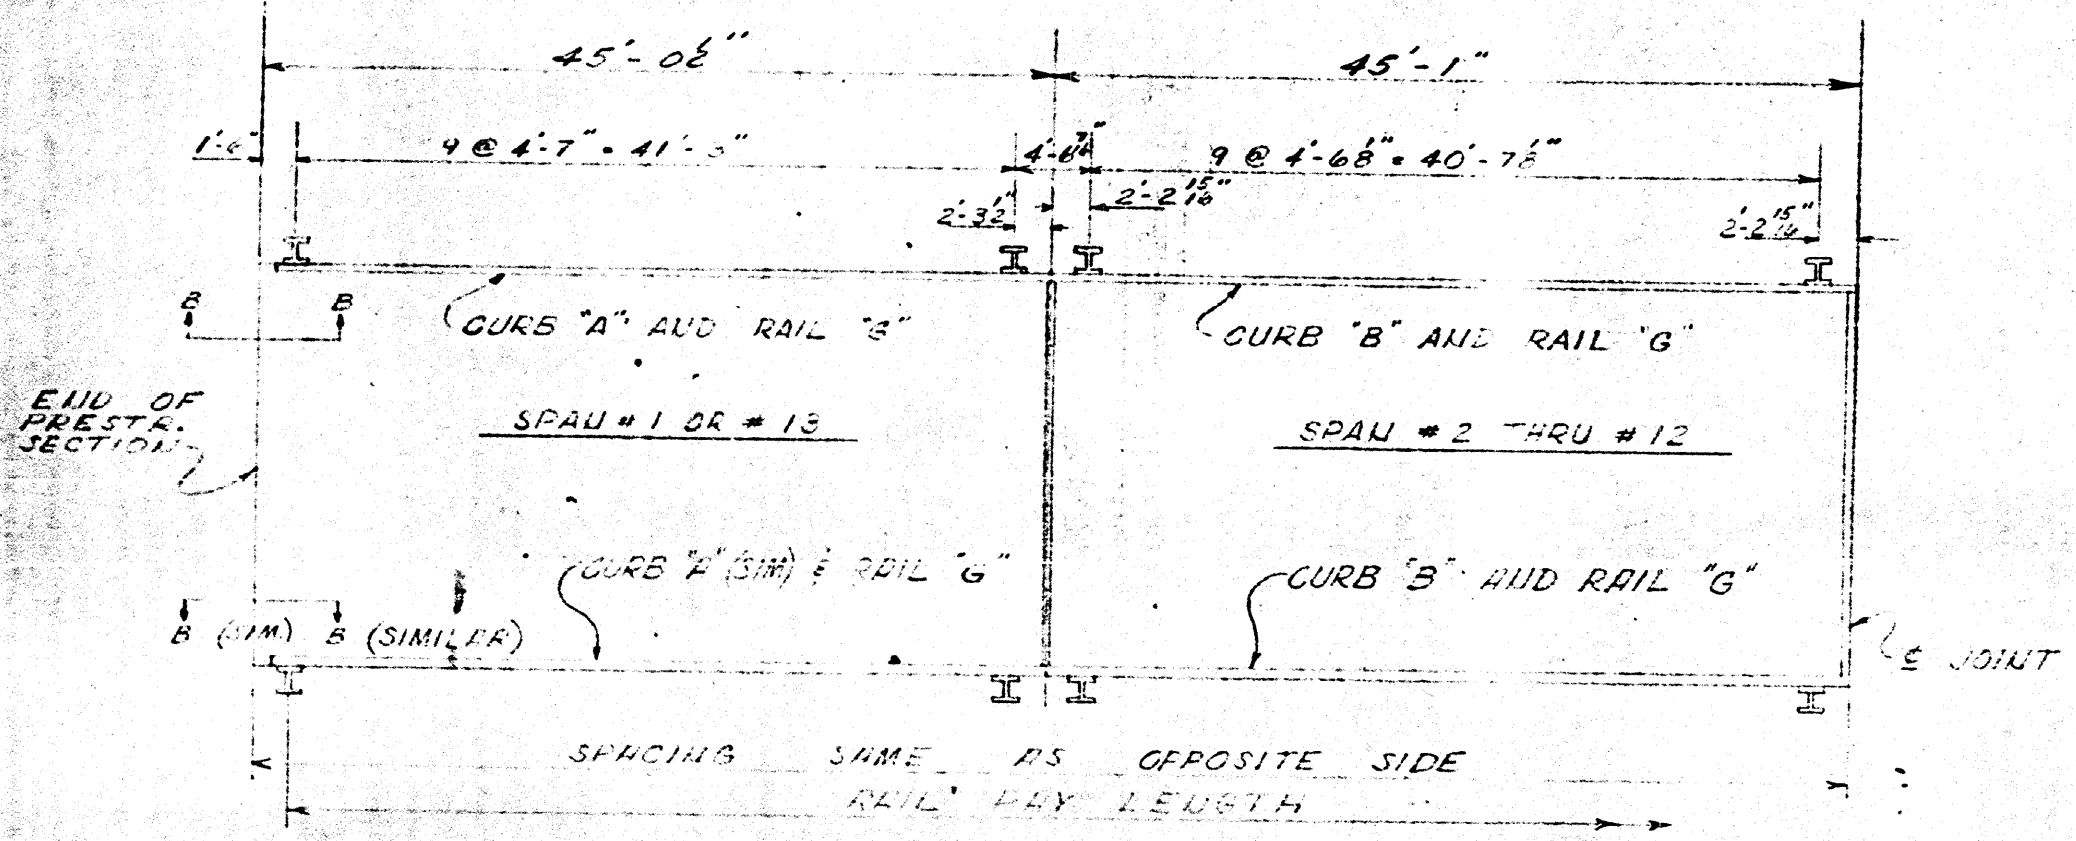 45'-0½"
45'-1"
1'-6"
9 @ 4'-7" = 41'-3"
4'-6 7/16"
9 @ 4'-6⅛" = 40'-7⅛"
2'-3½"
2'-2 15/16"
2'-2 15/16"
B B
CURB "A" AND RAIL "G"
CURB "B" AND RAIL "G"
END OF
PRESTR.
SECTION
SPAN # 1 OR # 13
SPAN # 2 THRU # 12
CURB "A" (SIM) & RAIL "G"
CURB "B" AND RAIL "G"
B (SIM) B (SIMILAR)
℄ JOINT
SPACING SAME AS OPPOSITE SIDE
RAIL PAY LENGTH